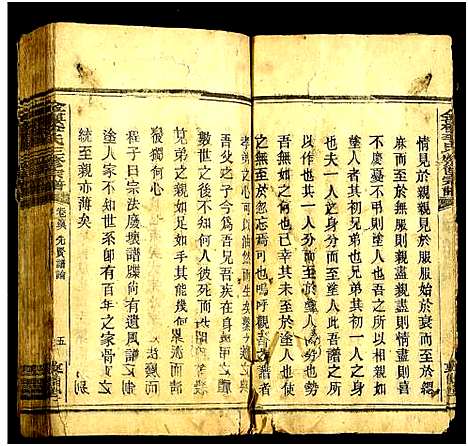 情見於親親見於服服始於衰而至於緦
而至於無服則親盡親盡則情盡則喜
不慶憂不弔則塗人也吾之所以相視如
塗人者其初兄弟也兄弟其初一人之身
也夫一人之身分而至於塗人此吾譜之所
以作也其意曰分而至於塗人者勢也勢
吾無如之何也已幸其未至於塗人也使
至於忽忘焉可也嗚呼觀吾
孝弟之心可以油然而生矣
吾父之子今為吾兄吾疾在身
數世之後不知何人
兄弟之親如足如手其能幾何
彼獨何心
程子曰宗法廢壞譜牒尚有遺風譜
塗人家不知世系卽有百年之家骨
統至親亦薄矣
先賢譜論
五